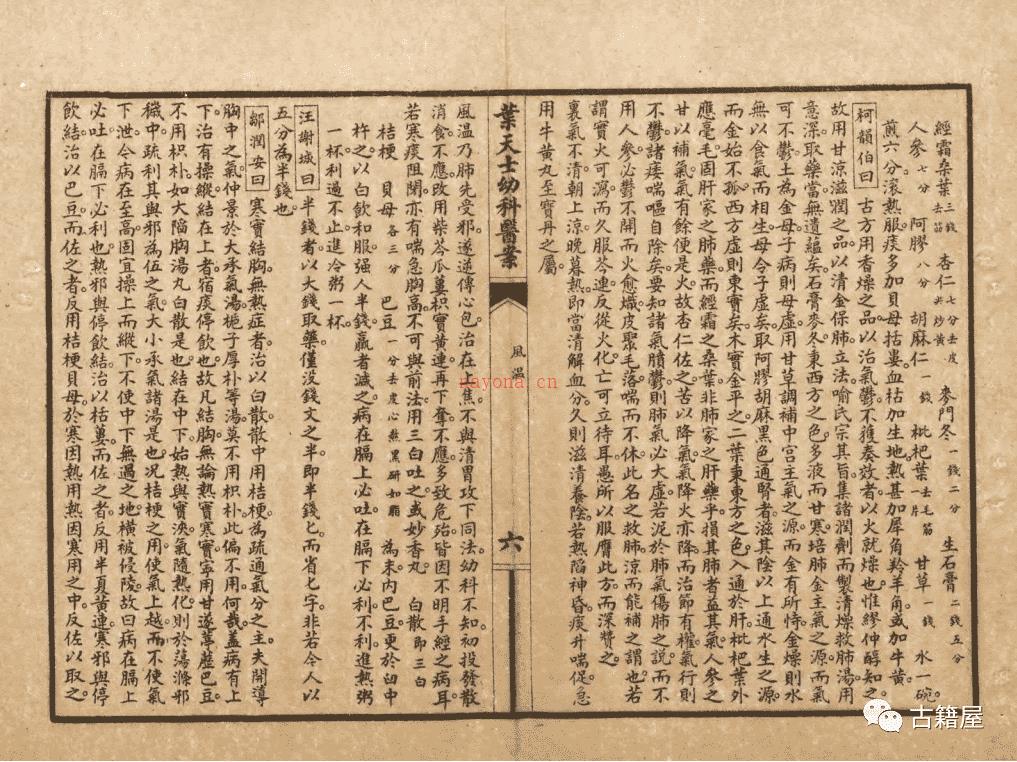 經霜桑葉 三錢去筋 杏仁 七分去皮尖炒黃 麥門冬 一錢二分 生石膏 二錢五分
人參 七分 阿膠 八分 胡麻仁 一錢 枇杷葉 去毛筋一片 甘草 一錢 水一碗
煎六分滾熱服痰多加貝母括蔞血枯加生地熱甚加犀角羚羊角或加牛黃
柯韻伯曰 古方用香燥之品以治氣鬱不獲奏效者以火就燥也惟繆仲醇知之
故用甘涼滋潤之品以清金保肺立法喻氏宗其旨集諸潤劑而製清燥救肺湯用
意深取藥當無遺蘊矣石膏麥冬秉西方之色多液而甘寒培肺金主氣之源而氣
可不鬱土為金母子病則母虛用甘草調補中宮主氣之源而金有所恃金燥則水
無以食氣而相生母令子虛矣取阿膠胡麻黑色通腎者滋其陰以上通水生之源
而金始不孤西方虛則東實矣木實金平之二葉秉東方之色入通於肝枇杷葉外
應毫毛固肝家之肺藥而經霜之桑葉非肺家之肝藥乎損其肺者益其氣人參之
甘以補氣氣有餘便是火故杏仁佐之苦以降氣氣降火亦降而治節有權氣行則
不鬱諸痿喘嘔自除矣要知諸氣膹鬱則肺氣必大虛若泥於肺氣傷肺之說而不
用人參必鬱不開而火愈熾皮聚毛落喘而不休此名之救肺涼而能補之謂也若
謂實火可瀉而久服芩連反從火化亡可立待耳愚所以服膺此方而深贊之
裏氣不清朝上涼晚暮熱即當清解血分久則滋清養陰若熱陷神昏痰升喘促急
用牛黃丸至寶丹之屬
葉天士幼科醫案 風溫 六
風溫乃肺先受邪遂逆傳心包治在上焦不與清胃攻下同法幼科不知初投發散
消食不應改用柴芩瓜蔞枳實黃連再下奪不應多致危殆皆因不明手經之病耳
若寒痰阻閉亦有喘急胸高不可與前法用三白吐之或妙香丸 白散即三白
桔梗 貝母 各三分 巴豆 一分去皮心熬黑研如脂 為末內巴豆更於臼中
杵之以白飲和服强人半錢羸者減之病在膈上必吐在膈下必利不利進熱粥
一杯利過不止進冷粥一杯
汪謝城曰 半錢者以大錢取藥僅沒錢文之半即半錢匕而省匕字非若今人以
五分為半錢也
鄒潤安曰 寒實結胸無熱症者治以白散散中用桔梗為疏通氣分之主夫開導
胸中之氣仲景於大承氣湯梔子厚朴等湯莫不用枳朴此偏不用何哉蓋病有上
下治有操縱結在上者宿痰停飲也故凡結胸無論熱實寒實寧用甘遂葶藶巴豆
不用枳朴如大陷胸湯丸白散是也結在中下始熱與實浹氣隨熱化則於蕩滌邪
穢中疏利其與邪為伍之氣大小承氣諸湯是也况桔梗之用使氣上越而不使氣
下泄今病在至高固宜操上而縱下不使中下無過之地橫被侵陵故曰病在膈上
必吐在膈下必利也熱邪與停飲結治以栝蔞而佐之者反用半夏黃連寒邪與停
飲結治以巴豆而佐之者反用桔梗貝母於寒因熱用熱因寒用之中反佐以取之
nayona.cn
古籍屋